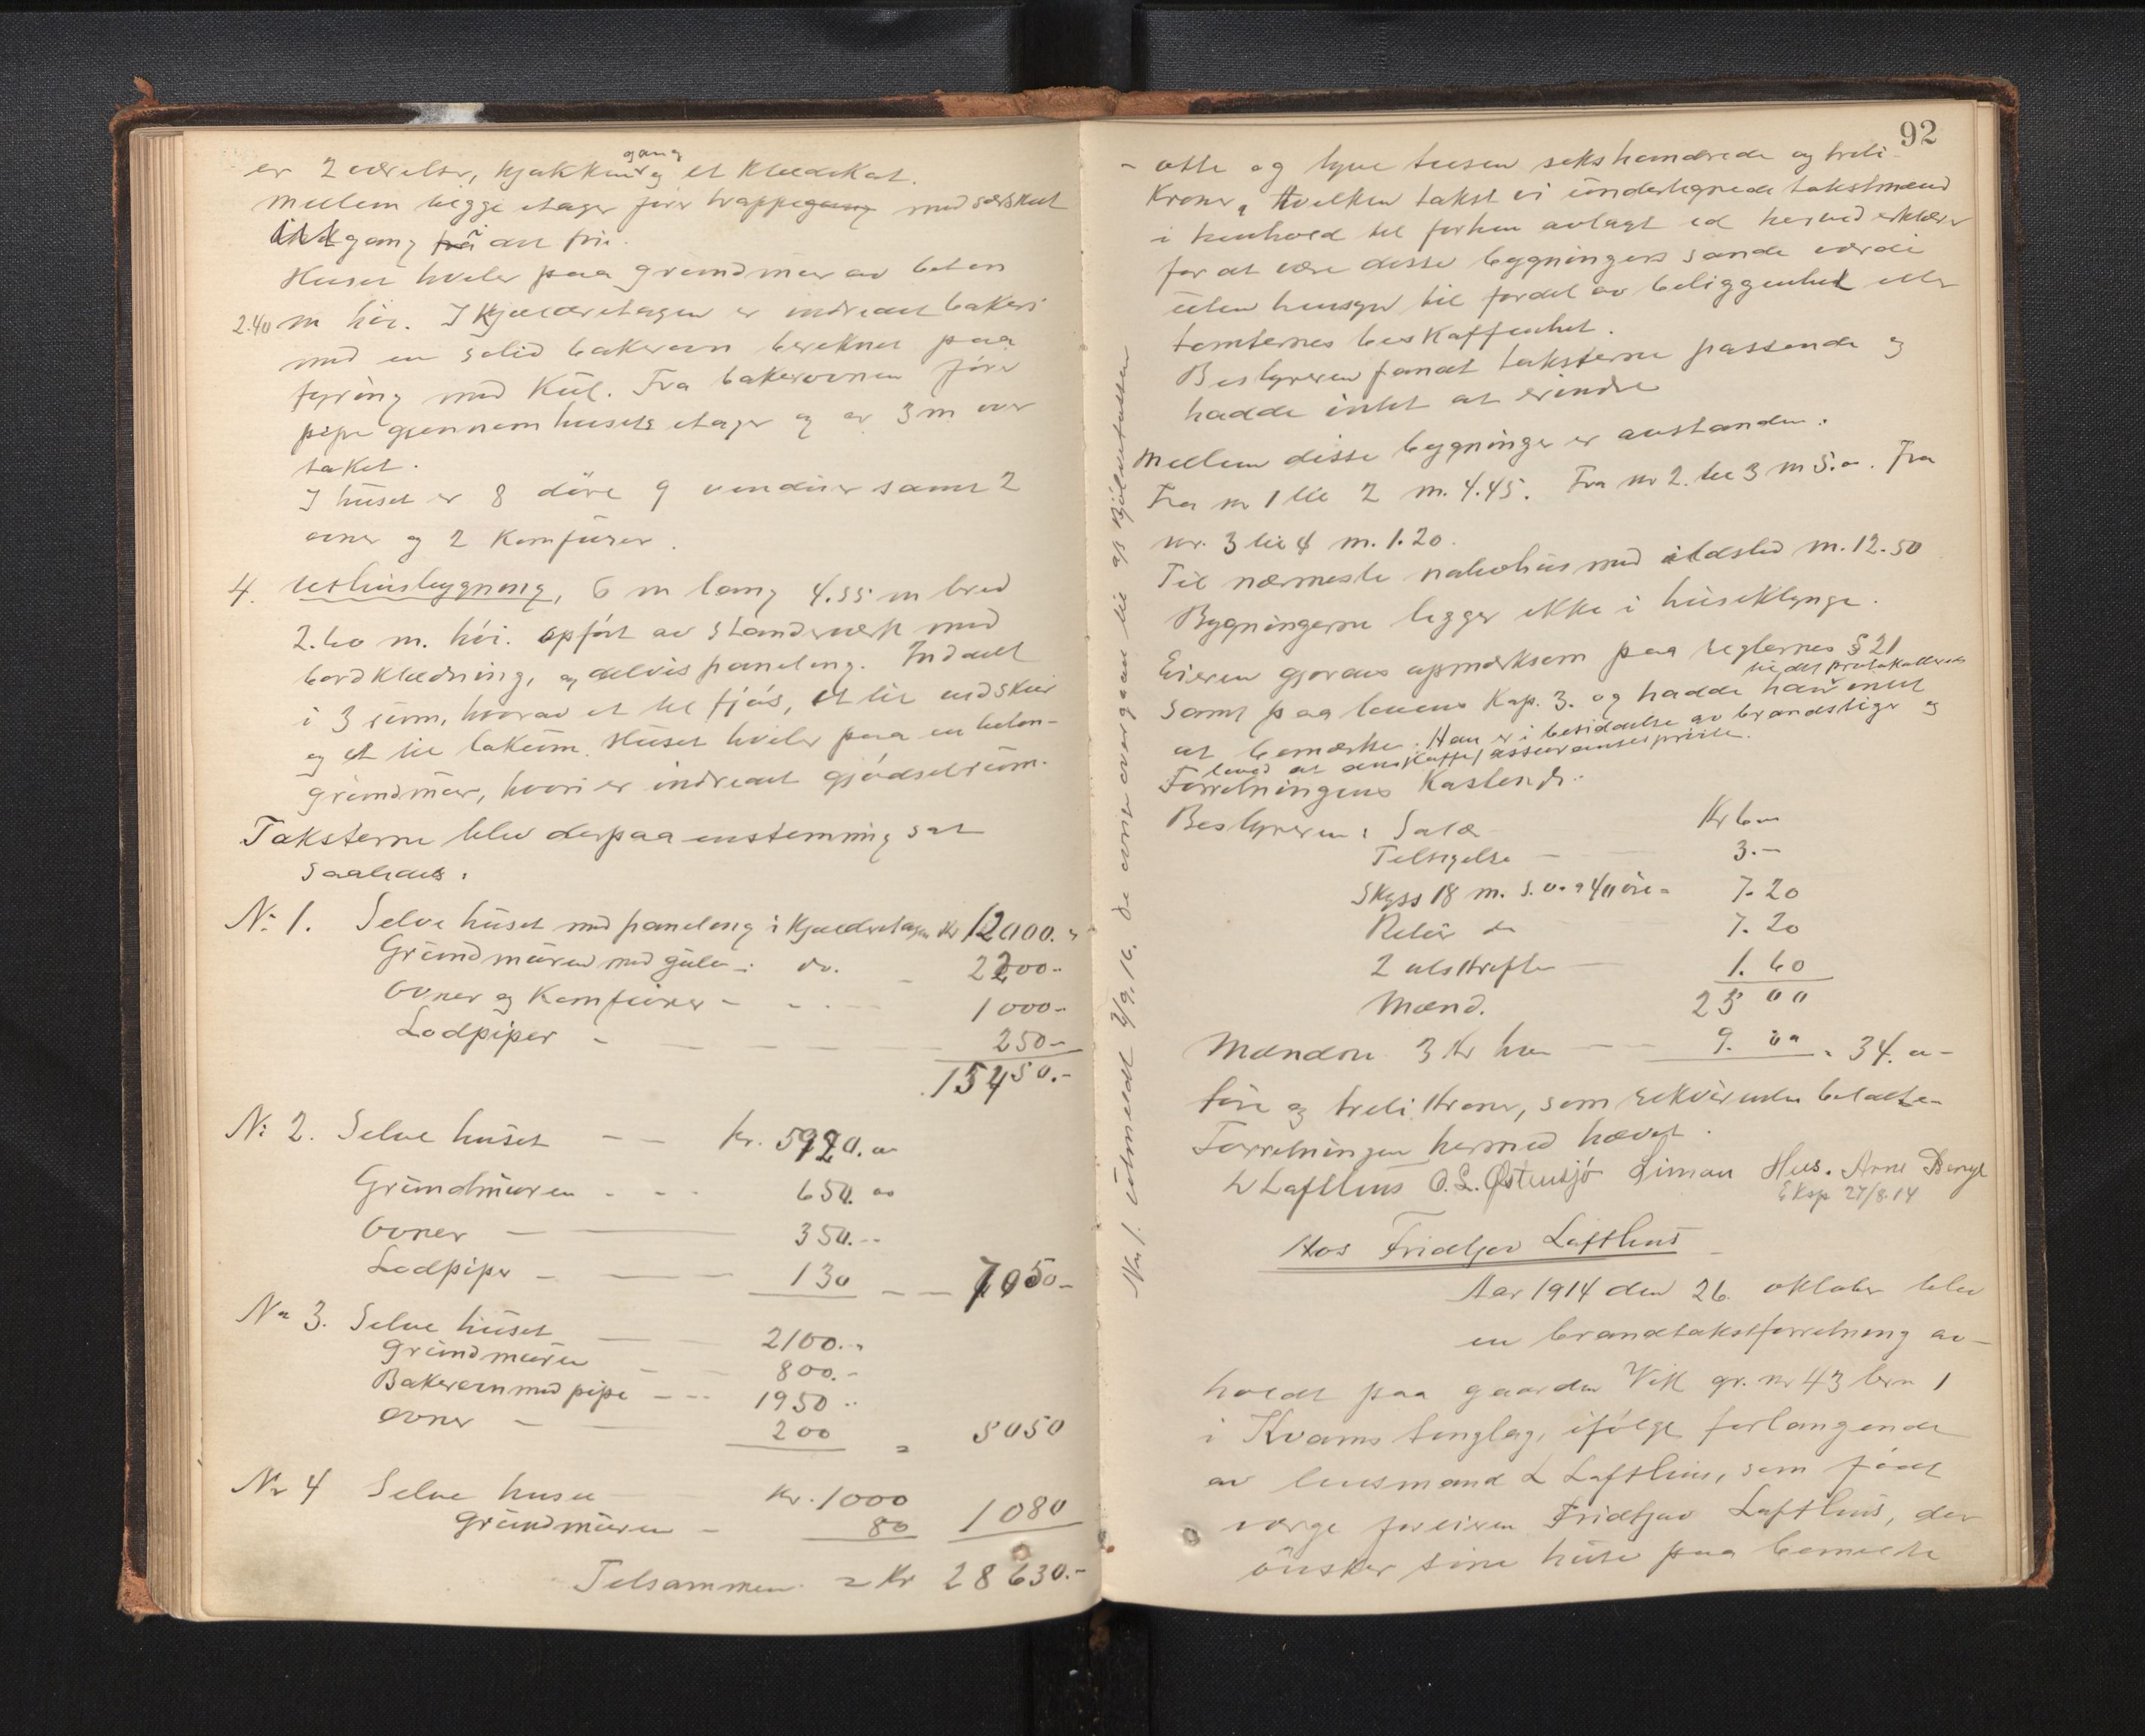 er 2 værelser, kjøkken gang og et klædekot.
Mellem begge etager förer trappegang med særskilt
indgang i det fri.
Huset hviler paa grundmur av beton
2.40 m höi. I Kjælderetagen er indredet bakeri
med en solid bakerovn bereknet paa
fyring med Kul. Fra bakerovnen förer
pipe gjennem husets etager og er 3 m over
taket.
I huset er 8 döre 9 vinduer samt 2
ovner og 2 Komfürer.
4. Uthusbygning, 6 m lang 4.55 m bred
2.60 m. höi. Opfört av standverk med
bordklædning, og delvis paneling. Inddelt
i 3 rum, hvorav et til fjös, et til vedskur
og et til lokum. Huset hviler paa en beton-
grundmur, hvori er indredet gjödselrum.
Taksterne blev derpaa enstemmig sat
saaledes:
No 1. Selve huset med paneling i Kjælderetagen Kr 12000. "
Grundmuren med gulv i do. - 2200 -
Ovner og Komfurer - - - - 1000 -
Lodpiper - - - - 250 -
15450.-
No 2. Selve huset - - Kr. 5920. oo
Grundmuren - - - 650. oo
Ovner - - 350. --
Lodpiper - - - 130 - - 7050 -
No 3. Selve huset - 2100. -
Grundmuren - - 800. -
Bakerovn med pipe - - - 1950 --
Ovner - - 200 = 5050
Nr 4 Selve huset - Kr. 1000
Grundmuren - 80 1080
Tilsammen = Kr 28630.-
92
- otte og tyve tusen sekshundrede og treti
Kroner, Hvilken takst vi undertegnede takstmænd
i henhold til forhen avlagt ed herved erklærer
for at være disse bygningers sande værdi
uten hensyn til fordel av beliggenhet eller
tomternes beskaffenhet.
Bestyreren fandt taksterne passende og
hadde intet at erindre
Mellem disse bygninger er avstanden:
Fra nr 1 til 2 m. 4.45. Fra nr 2. til 3 m 5.o. Fra
nr. 3 til 4 m. 1.20.
Til nærmeste nabohus med ildsted m. 12.50
Bygningerne ligger ikke i huseklynge.
Eieren gjordes opmerksom paa reglernes § 21
samt paa lovens Kap. 3. og hadde han intet til det protokollerede
at bemærke. Han er i besiddelse av brandstige og
lovet at anskaffe assuransespröite.
Forretningens Kostende:
Bestyreren: Salær Kr 6 oo
Tilsigelse - - 3.-
Skyss 18 m. s.v. a 40 öre = 7.20
Retur do 7.20
2 utskrifter - 1.60
Mænd. 25 00
Mændene 3 Kr hver - - 9. oo = 34. o -
fire og treti Kroner, som rekvirenten betalte -
Forretningen hermed hævet.
L Lofthus O. L. Østensjö Simon Hus. Arne Berge
Eksp 27/8.14
Hos Fridtjov Lofthus
Aar 1914 den 26. oktober blev
en brandtakstforretning av-
holdt paa gaarden Vik gr. nr 43 brn 1
i Kvams tinglag, ifölge forlangende
av lensmand L Lofthus, som född
værge for eieren Fridtjov Lofthus, der
önsker sine huse paa bemeldte
Nr 1. utmeldt 2/9. 16. da overgaar til